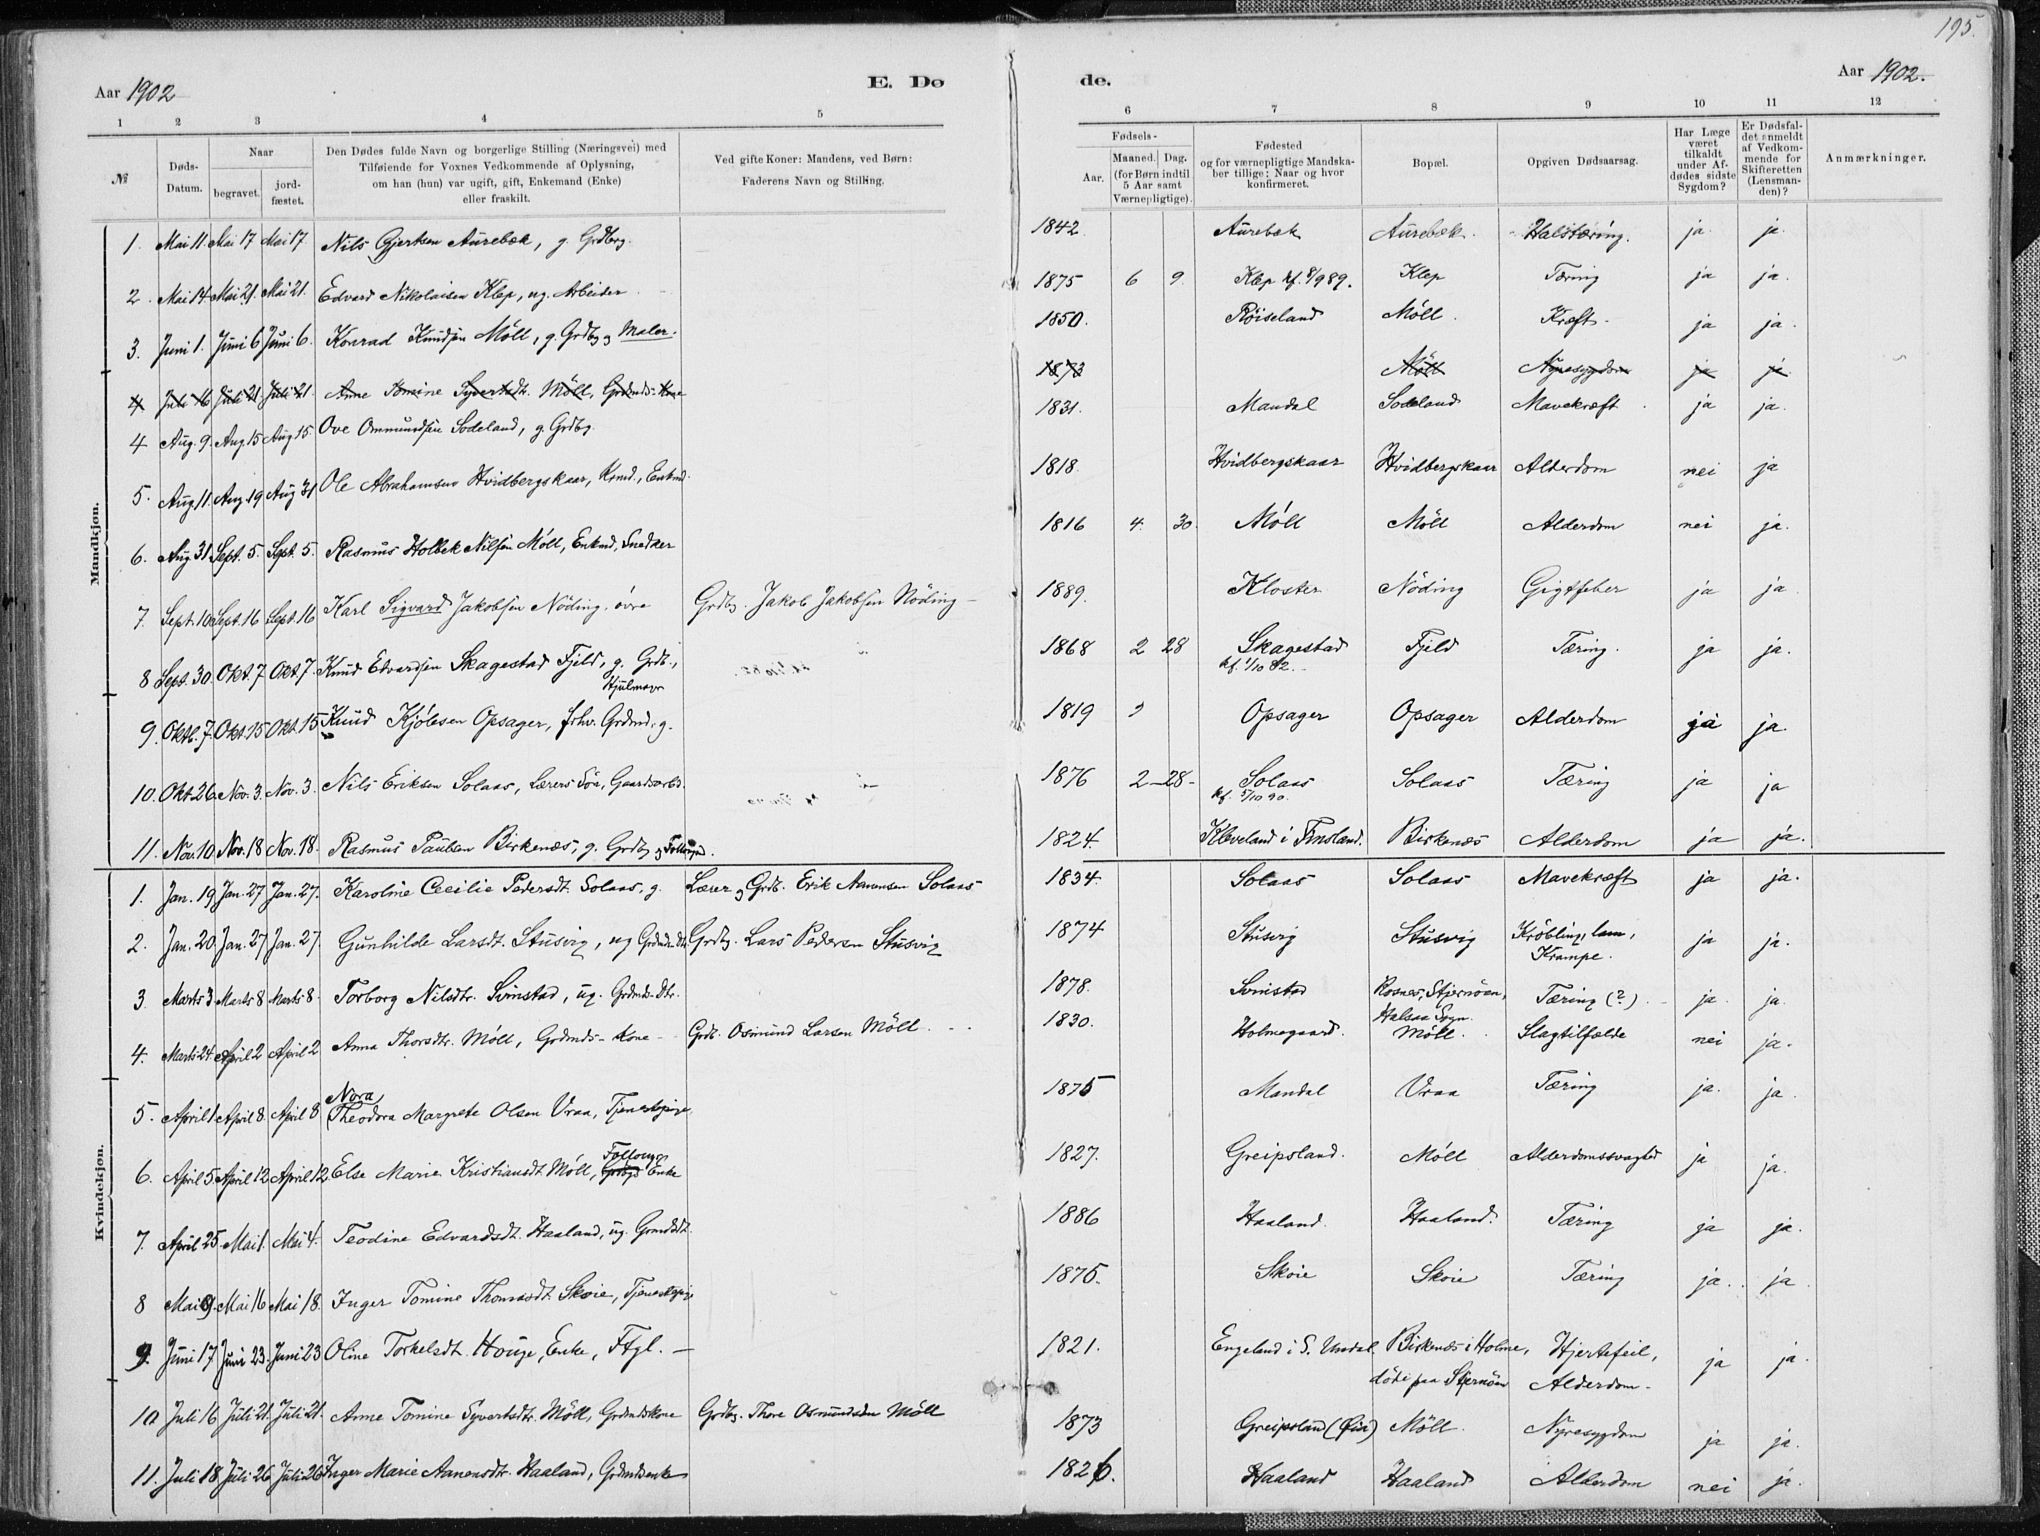 195.
Aar 1902
E. Dø
de.
Aar 1902.
1 2 3 4 5
6 7 8 9 10 11 12
№
Døds-Datum.
Naar
begravet.
jordfæstet.
Den Dødes fulde Navn og borgerlige Stilling (Næringsvei) med
Tilføiende for Voxnes Vedkommende af Oplysning,
om han (hun) var ugift, gift, Enkemand (Enke)
eller fraskilt.
Ved gifte Koner: Mandens, ved Børn:
Faderens Navn og Stilling.
Fødsels-
Aar.
Maaned. Dag.
(for Børn indtil
5 Aar samt
Værnepligtige).
Fødested
og for værnepligtige Mandska-
ber tillige: Naar og hvor
konfirmeret.
Bopæl.
Opgiven Dødsaarsag.
Har Læge
været
tilkaldt
under Af-
dødes sidste
Sygdom?
Er Dødsfal-
det anmeldt
af Vedkom-
mende for
Skifteretten
(Lensman-
den)?
Anmærkninger.
Mandkjøn.
1. Mai 11. Mai 17 Mai 17. Nils Gjertsen Aurebæk, g. Grdbrg. 1842. Aurebæk Aurebæk. Halstæring. ja. ja.
2. Mai 14 Mai 21. Mai 21. Edvard Nikolaisen Klep, ug. Arbeider 1875 6 9. Klep kf. 8/9 89. Klep Tæring ja ja.
3. Juni 1. Juni 6 Juni 6. Konrad Knudsen Möll, g. Grdbg og Maler. 1850. Röiseland Möll. Kræft. ja ja.
4 Juli 16 Juli 21 Juli 21. Anne Tomine Syvertsdt. Möll, Grdmds-Kone 1873 Möll Nyresygdom ja ja
4 Aug. 9. Aug. 15 Aug 15. Ove Ommundsen Sodeland, g. Grdbg. 1831. Mandal Sodeland Mavekræft. ja ja.
5. Aug 11. Aug. 19 Aug 31 Ole Abrahamsen Hvidbergskaar, Kand., Enkmd. 1818. Hvidbergskaar Hvidbergskaar Alderdom nei ja
6. Aug 31 Sept. 5. Sept. 5. Rasmus Holbek Nilsen Möll, Enkmd, Snedker 1816 4. 30. Möll Möll Alderdom nei ja.
7. Sept. 10. Sept. 16 Sept. 16 Karl Sigvard Jakobsen Nöding, övre Grdbg. Jakob Jakobsen Nöding 1889. Kloster Nöding Gigtfeber ja ja.
8 Sept. 30. Okt. 7 Okt. 7. Knud Edvardsen Skagestad Fjeld, g. Grdb., Hjulmager 1868 2 28 Skagestad kf. 1/10 82. Fjeld Tæring. ja ja.
9. Oktb. 7. Okt. 15 Okt. 15 Knud Kjölesen Opsager, fhv. Grdmd, g. 1819 Opsager Opsager Alderdom ja ja.
10. Okt. 26. Nov. 3. Nov. 3. Nils Eriksen Solaas, Lærers Sön, Gaardsarbd. 1876 2 - 28 - Solaas kf. 5/10 90. Solaas Tæring ja ja
11. Nov. 10. Nov. 18 Nov. 18. Rasmus Paulsen Birkenæs, g. Grdbg og 1824. Kleveland i Finsland. Birkenæs Alderdom ja ja.
Kvindekjøn.
1. Jan. 19. Jan. 27 Jan. 27. Karoline Cecilie Pedersdt. Solaas, g. Lærer og Grdb. Erik Aanensen Solaas 1834. Solaas Solaas Mavekræft ja ja.
2. Jan. 20. Jan. 27 Jan. 27. Gunhilde Larsdt. Stusvig, ug Grdmds Dtr. Grdbg. Lars Pedersen Stusvig 1874 Stusvig Stusvig Kröbling, lam, Krampe. ja ja.
3 Marts 3. Marts 8 Marts 8. Torborg Nilsdtr. Svinstad, ug. Grdmds-Dtr. 1878. Svinstad Rosnes, Stjernöen, Halsaa Sogn. Tæring (?). ja. ja.
4. Marts 24. April 2 April 2 Anna Thorsdtr. Möll, Grdmds-Kone Grdb. Osmund Larsen Möll. 1830. Holmegaard. Möll. Slagtilfælde nei ja.
5. April 1. April 8 April 8 Nora Theodora Margrete Olsen Vraa, Tjenestepige 1875 Mandal Vraa Tæring ja. ja.
6. April 5. April 12 April 12. Else Marie Kristiansdt. Möll, Enke 1827. Greipsland. Möll Alderdomssvaghed ja ja.
7. April 25. Mai 1. Mai 4. Teodine Edvardsdt. Haaland, ug. Grmdsdt. 1886 Haaland. Haaland. Tæring ja ja.
8 Mai 9. Mai 16 Mai 18. Inger Tomine Thomasdt. Skoie, Tjenestepige 1875. Skoie Skoie Tæring ja. ja
9. Juni 17. Juni 23. Juni 23 Oline Torkelsdt. Houge, Enke, Ftgl. 1821. Engeland i S. Undal. Birkenæs i Holme, döde paa Stjernöen Hjertefeil, Alderdom. ja ja.
10. Juli 16 Juli 21. Juli 21. Anne Tomine Syvertsdtr. Möll, Grdmdskone Grdbg. Thore Osmundsen Möll 1873 Greipsland (Öia) Möll. Nyresygdom ja ja.
11. Juli 18. Juli 26 Juli 26 Inger Marie Aanensdtr. Haaland, Grdmdsenke 1826. Haaland Haaland Alderdom nei ja.